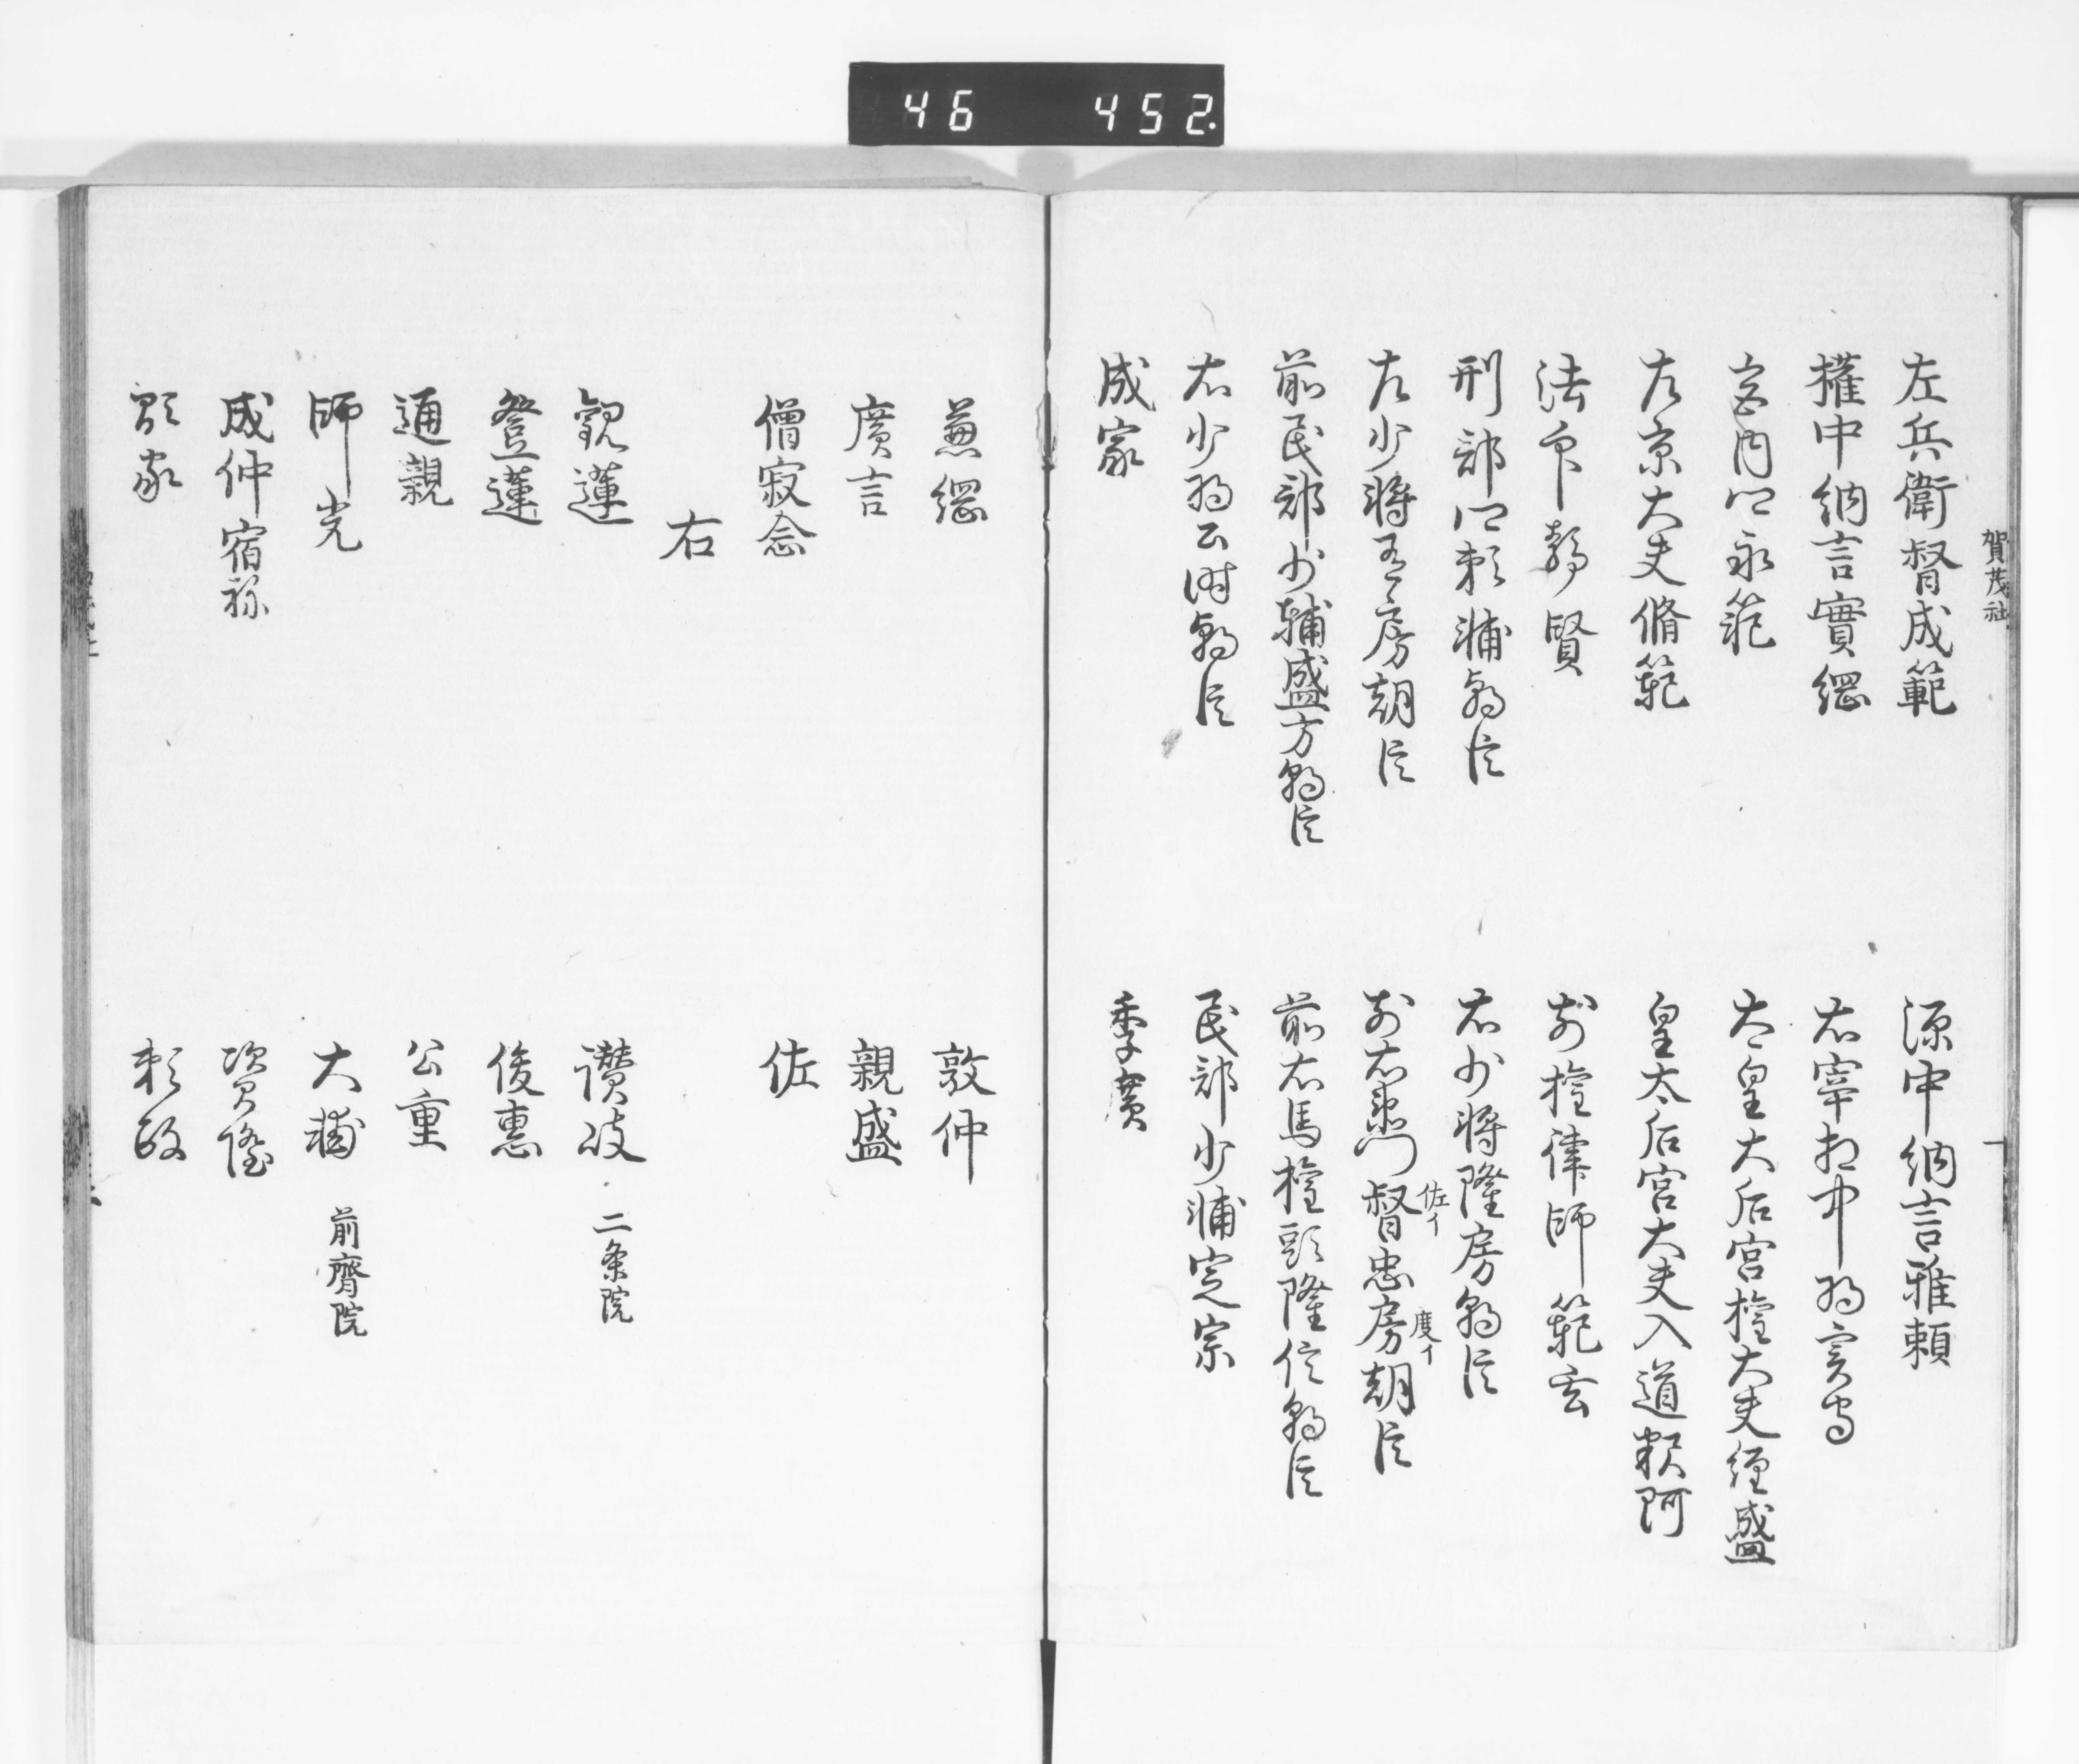 46 452.
賀茂社
左兵衛督成範
源中納言雅頼
權中納言實綱
右宰相中将実守
宮内卿永範
太皇大后宮権大夫経盛
左京大夫脩範
皇太后宮大夫入道釈阿
法印静賢
前権律師範玄
刑部卿頼輔朝臣
右少将隆房朝臣
左少将有房朝臣
前右衛門督忠房朝臣
佐イ
度イ
前民部少輔盛方朝臣
前右馬権頭隆信朝臣
右少将公時朝臣
民部少輔定宗
成家
季廣
兼綱
敦仲
廣言
親盛
僧寂念
佐
右
観蓮
讃岐 二条院
登蓮
俊惠
通親
公重
師光
大輔 前齊院
成仲宿祢
資隆
顕家
頼政